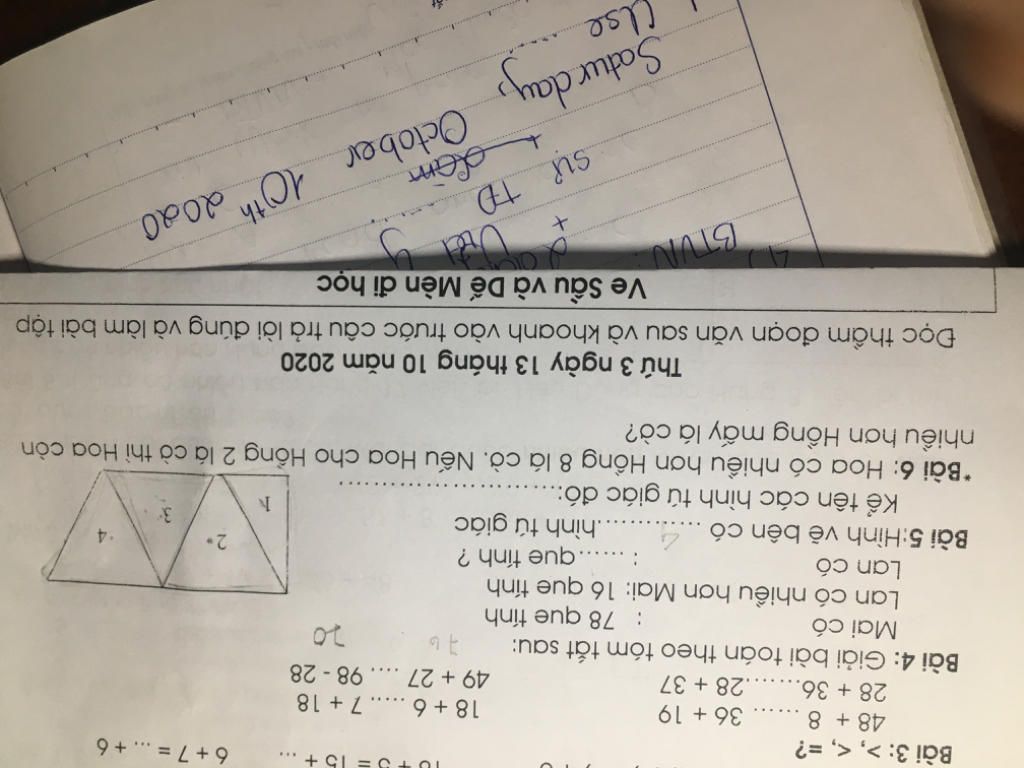 6 + 7 = ... + 6
Bài 3: >, <, =?
48 + 8 ...... 36 + 19 18 + 6 ...... 7 + 18
28 + 36.......28 + 37 49 + 27 .... 98 - 28
76 70
Bài 4: Giải bài toán theo tóm tắt sau:
Mai có : 78 que tính
Lan có nhiều hơn Mai: 16 que tính
Lan có : ......que tính ?
Bài 5:Hình vẽ bên có ............hình tứ giác
4
Kể tên các hình tứ giác đó:..........................
1 2 3 4
*Bài 6: Hoa có nhiều hơn Hồng 8 lá cờ. Nếu Hoa cho Hồng 2 lá cờ thì Hoa còn
nhiều hơn Hồng mấy lá cờ?
Thứ 3 ngày 13 tháng 10 năm 2020
Đọc thầm đoạn văn sau và khoanh vào trước câu trả lời đúng và làm bài tập
Ve Sầu và Dế Mèn đi học
BTVN:
Saturday, October 10th 2020
Use